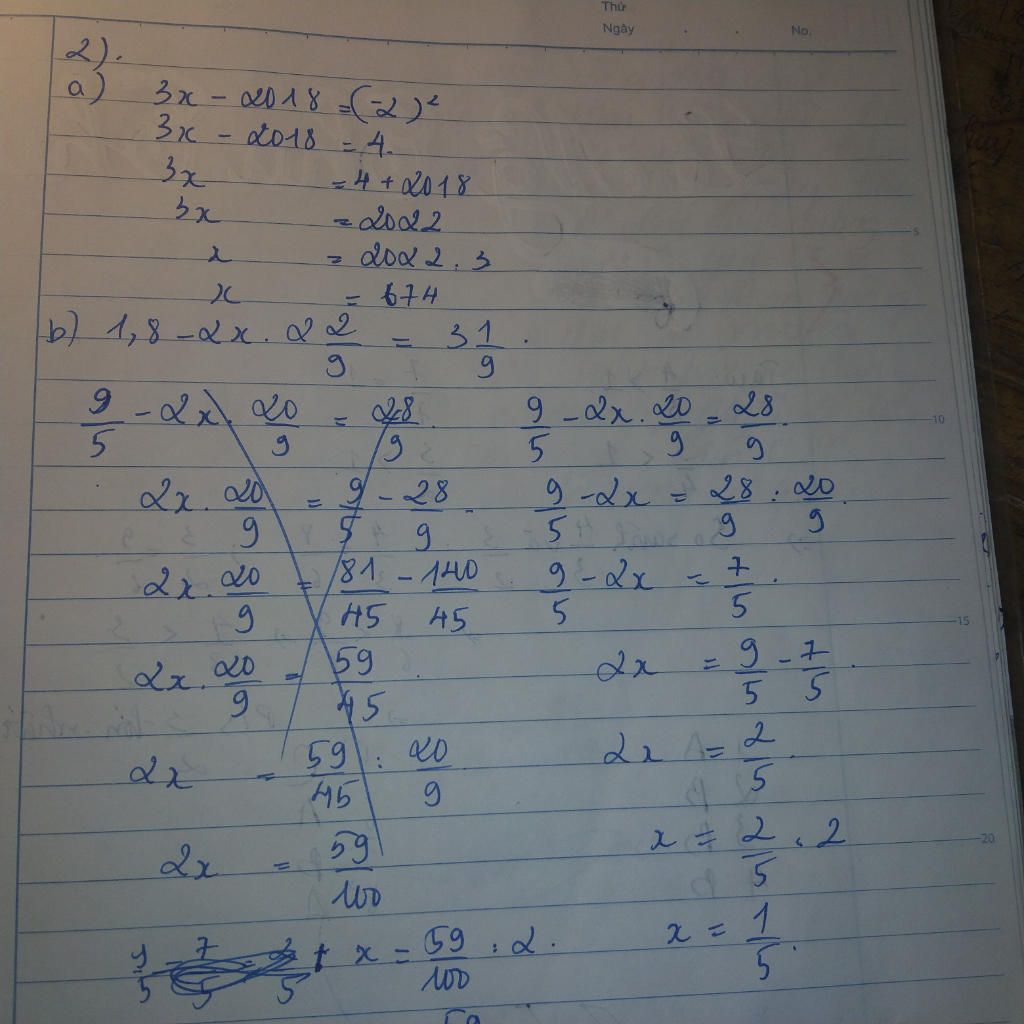 Thứ
Ngày . . No.
2).
a) 3x - 2018 = (-2)²
3x - 2018 = 4.
3x = 4 + 2018
3x = 2022
x = 2022 : 3
x = 674
b) 1,8 - 2x . 2 2/9 = 3 1/9 .
9/5 - 2x . 20/9 = 28/9
2x . 20/9 = 9/5 - 28/9 .
2x . 20/9 = 81/45 - 140/45
2x . 20/9 = 59/45 .
2x = 59/45 : 20/9
2x = 59/100
x = 59/100 : 2 .
59
9/5 - 2x . 20/9 = 28/9 .
9/5 - 2x = 28/9 : 20/9 .
9/5 - 2x = 7/5 .
2x = 9/5 - 7/5 .
2x = 2/5 .
x = 2/5 : 2
x = 1/5 .
5
10
15
20